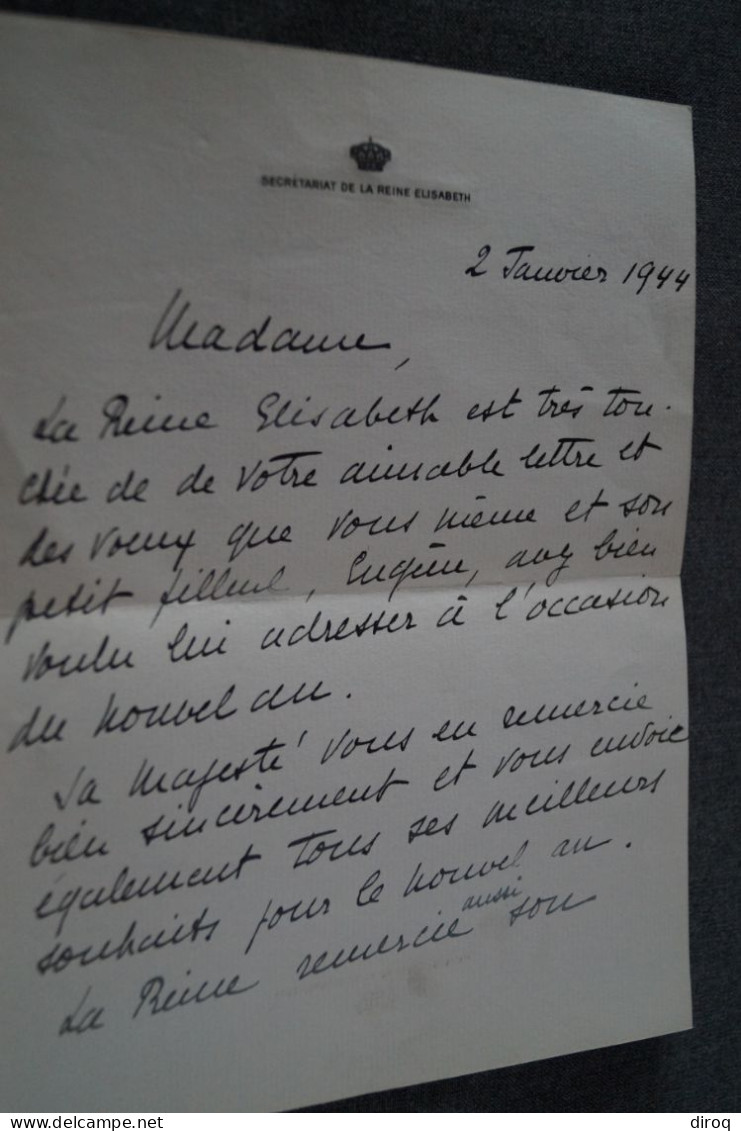 SECRÉTARIAT DE LA REINE ELISABETH
2 Janvier 1944
Madame,
La Reine Elisabeth est très tou-
chée de de votre aimable lettre et
des voeux que vous même et son
petit filleul, Eugène, avez bien
voulu lui adresser à l'occasion
du nouvel an.
Sa Majesté vous en remercie
bien sincèrement et vous envoie
également tous ses meilleurs
souhaits pour le nouvel an.
La Reine remercie aussi son
delcampe.net
diroq